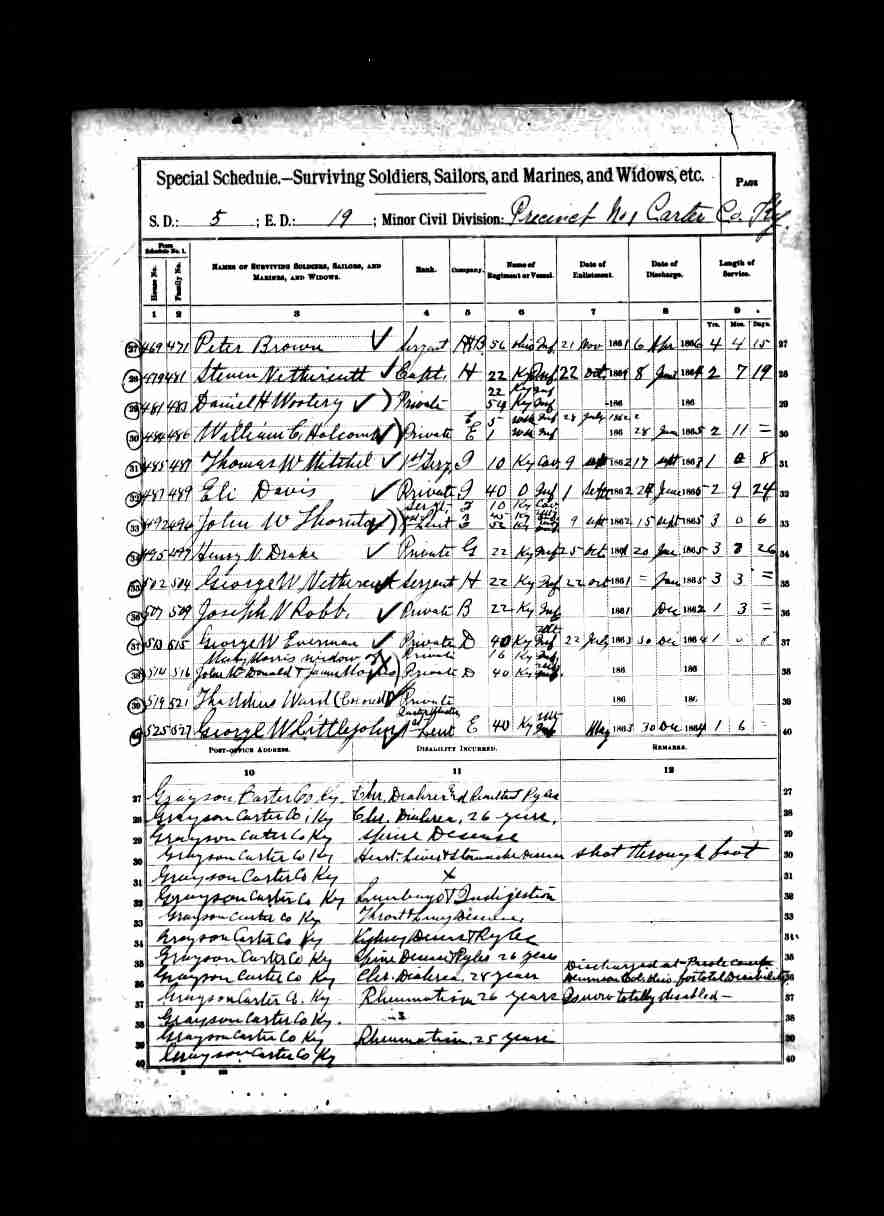 Special Schedule.—Surviving Soldiers, Sailors, and Marines, and Widows, etc.
PAGE
S. D.: 5 ; E. D.: 19 ; Minor Civil Division: Precinct No 1 Carter Co. Ky.
From Schedule No. 1.
House No. Family No. NAMES OF SURVIVING SOLDIERS, SAILORS, AND MARINES, AND WIDOWS. Rank. Company. Name of Regiment or Vessel. Date of Enlistment. Date of Discharge. Length of Service.
1 2 3 4 5 6 7 8 9
Yrs. Mos. Days.
27 469 471 Peter Brown Serzent 56 Ohio Inf 21 Nov 1861 6 Apr 1866 4 4 15 27
28 479 481 Steven Nethercutt Capt. H 22 Ky Inf 22 Oct 1861 8 1864 2 7 19 28
22 Ky Inf
29 481 483 Daniel H Woolery Private 54 Ky Inf 186 186 29
E 5 Inf 28 July 1862
30 484 486 William C. Holcomb Private E 1 Inf 186 28 June 1865 2 11 = 30
31 485 487 Thomas W Mitchel 1st Serz. I 10 Ky Cav 9 1862 17 Sept 1863 1 8 31
32 487 489 Eli Davis Private I 40 O Inf 1 Sept 1862 24 June 1865 2 9 24 32
10 Ky Cav
33 492 494 John W Thornton Lieut 9 Sept 1862 15 Sept 1865 3 0 6 33
34 495 497 Henry N. Drake Private G 22 Ky Inf 25 Oct 1861 20 Jan 1865 3 26 34
35 502 504 George W. Nethercutt Serzent H 22 Ky Inf 22 oct 1861 = Jan 1865 3 3 = 35
36 507 509 Joseph N Robb. Private B 22 Ky Inf 1861 Dec 1862 1 3 = 36
37 513 515 George W Everman Private D 40 Ky Inf 22 July 1863 30 Dec 1864 1 37
widow of Private 16 Ky
38 514 516 Private D 40 Ky 186 186 38
39 519 521 Ward Private 186 186 39
40 525 527 George W Littlejohn 1st Lieut E 40 Ky Inf May 1863 30 Dec 1864 1 6 = 40
POST-OFFICE ADDRESS. DISABILITY INCURRED. REMARKS.
10 11 12
27 Grayson Carter Co Ky. Pyles 27
28 Grayson Carter Co, Ky Chr. Diahrea, 26 years, 28
29 Grayson Carter Co Ky Spine Desease 29
30 Grayson Carter Co Ky shot through foot 30
31 Grayson Carter Co Ky x 31
32 Grayson Carter Co Ky Indijestion 32
33 Grayson Carter Co Ky Throat & Lung 33
34 Grayson Carter Co Ky Pyles 34
35 Grayson Carter Co Ky Spine Pyles 26 years 35
Discharged at
36 Grayson Carter Co Ky Chr. Diahrea, 28 years for total Disability 36
37 Grayson Carter Co. Ky Rheumatism 26 years Is now totally disabled — 37
38 Grayson Carter Co Ky. 38
39 Grayson Carter Co Ky Rheumatism. 25 years 39
40 Grayson Carter Co Ky 40